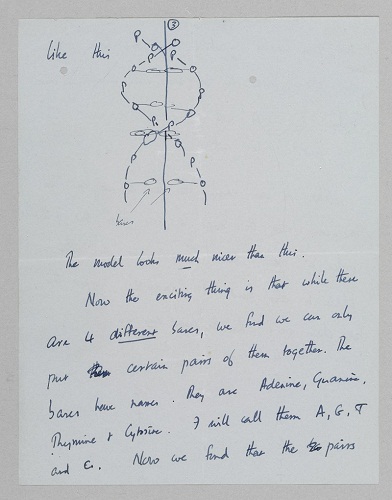 ③
Like this
P
P
P
P
P
P
P
P
P
P
bases
The model looks much nicer than this.
Now the exciting thing is that while there
are 4 different bases, we find we can only
put certain pairs of them together. The
bases have names. They are Adenine, Guanine,
Thymine & Cytosine. I will call them A, G, T
and C. Now we find that the pairs